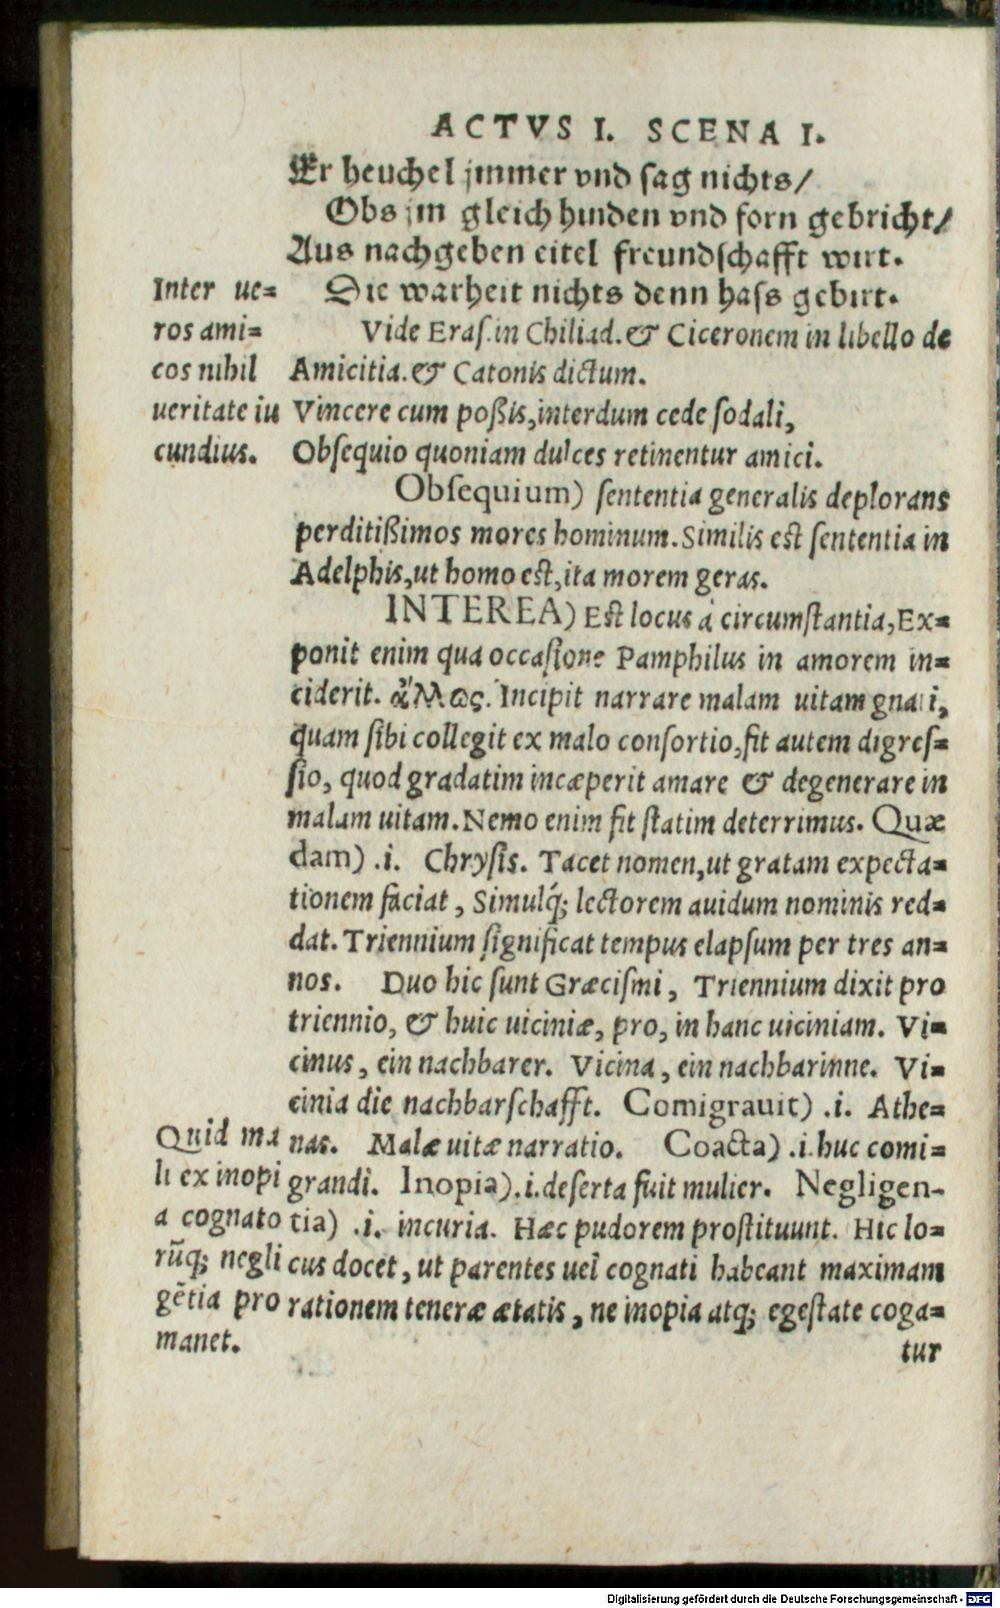 ACTVS I. SCENA I.
Er heuchel jmmer vnd sag nichts/
Obs jm gleich hinden vnd forn gebricht/
Aus nachgeben eitel freundschafft wirt.
Die warheit nichts denn hass gebirt.
Inter ue=
ros ami=
cos nihil
ueritate iu
cundius.
Vide Eraſ. in Chiliad. & Ciceronem in libello de
Amicitia. & Catonis dictum.
Vincere cum poßis, interdum cede ſodali,
Obſequio quoniam dulces retinentur amici.
Obſequium) ſententia generalis deplorans
perditißimos mores hominum. Similis eſt ſententia in
Adelphis, ut homo eſt, ita morem geras.
INTEREA) Eſt locus à circumſtantia, Ex=
ponit enim qua occaſione Pamphilus in amorem in=
ciderit. ἄλλως. Incipit narrare malam uitam gnati,
quam ſibi collegit ex malo conſortio, fit autem digreſ=
ſio, quod gradatim incæperit amare & degenerare in
malam uitam. Nemo enim fit ſtatim deterrimus. Quæ
dam) .i. Chryſis. Tacet nomen, ut gratam expecta=
tionem faciat, Simulq́; lectorem auidum nominis red=
dat. Triennium ſignificat tempus elapſum per tres an=
nos. Duo hic ſunt Græciſmi, Triennium dixit pro
triennio, & huic uiciniæ, pro, in hanc uiciniam. Vi=
cinus, ein nachbarer. Vicina, ein nachbarinne. Vi=
cinia die nachbarſchafft. Comigrauit) .i. Athe=
nas. Malæ uitæ narratio. Coacta) .i. huc comi=
grandi. Inopia) .i. deſerta fuit mulier. Negligen-
tia) .i. incuria. Hæc pudorem proſtituunt. Hic lo=
cus docet, ut parentes uel cognati habeant maximam
rationem teneræ ætatis, ne inopia atq; egeſtate coga=
tur
Quid ma
li ex inopi
a cognato
rũq; negli
gẽtia pro
manet.
Digitalisierung gefördert durch die Deutsche Forschungsgemeinschaft - DFG